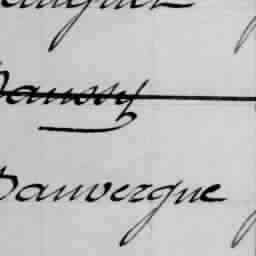 Daussy
Dauvergne